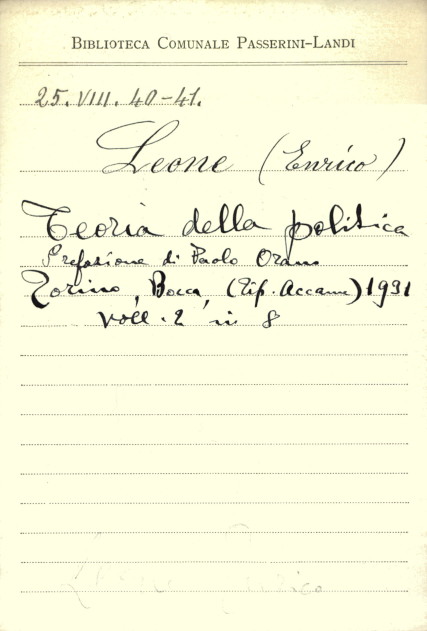 BIBLIOTECA COMUNALE PASSERINI-LANDI
25. VIII. 40-41.
Leone (Enrico)
Teoria della politica
Prefazione di Paolo Orano
Torino, Bocca, (Tip. Accame) 1931
voll. 2 in 8